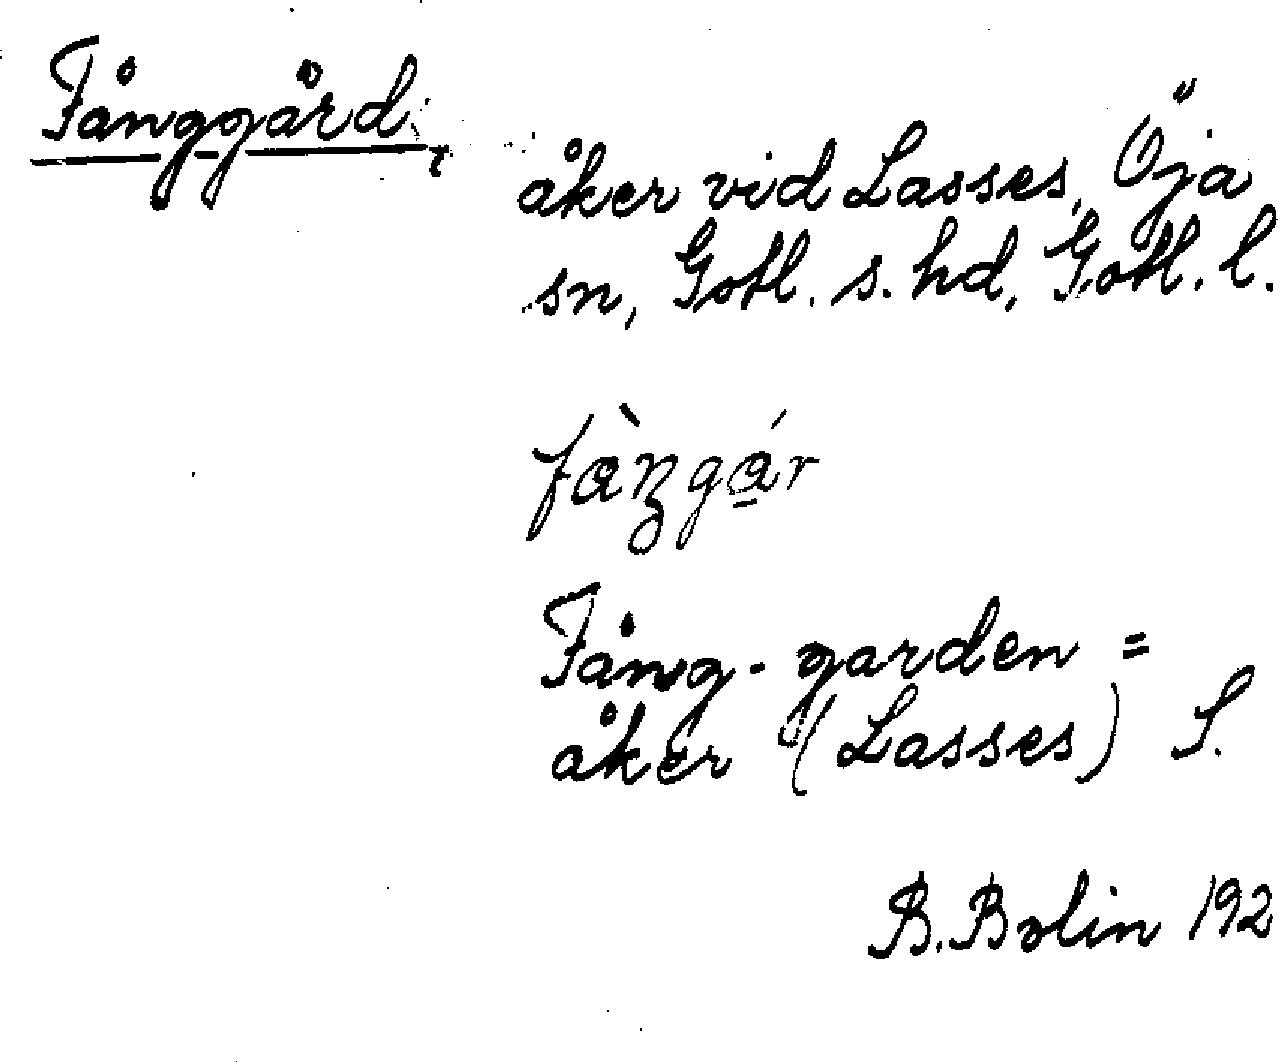 Fånggård,
åker vid Lasses, Öja
sn, Gotl. s. hd, Gotl. l.
fàŋgá̱r
Fång-garden =
åker (Lasses) S.
B. Bolin 192